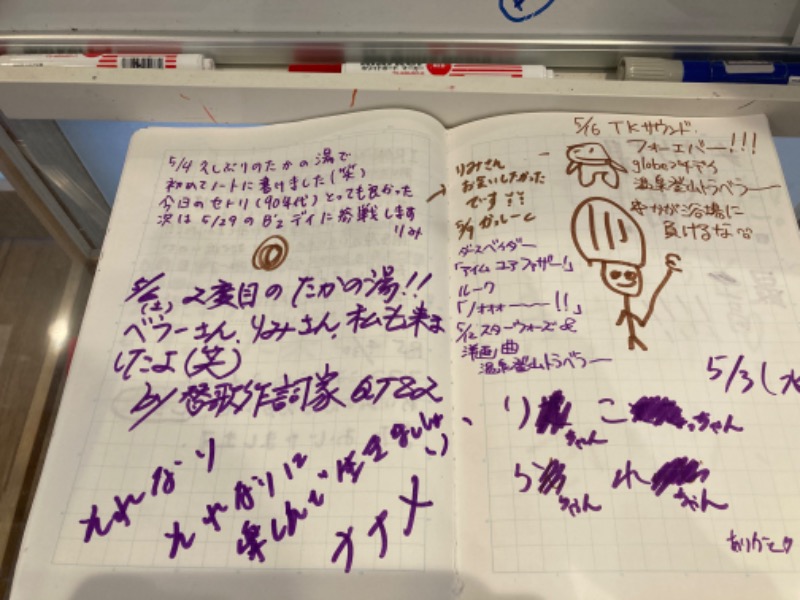 5/4 久しぶりのたかの湯で
初めてノートに書けました(笑)
今日のセトリ(90年代)とっても良かった
次は5/29のB'zデイに参戦します
りみ
2度目のたかの湯!!
ベラーさん、りみさん、私も来ま
したよ(笑)
by 替歌作詞家
それなり
それなりに
楽しんで生きましょ
りみさん
お会いしたかった
です
5/9
ダースベイダー
「アイム ユア ファザー!」
ルーク
「ノオオオー〜〜!!」
5/12 スターウォーズ &
洋画ノ曲
温泉登山トラベラー
5/16 TKサウンド
フォーエバー!!!
globeコデイ
温泉登山トラベラー
やかが浴場に
負けるな
5/3(水
り ちゃん こ っちゃん
ら ちゃん れ ちゃん
ありがと♡